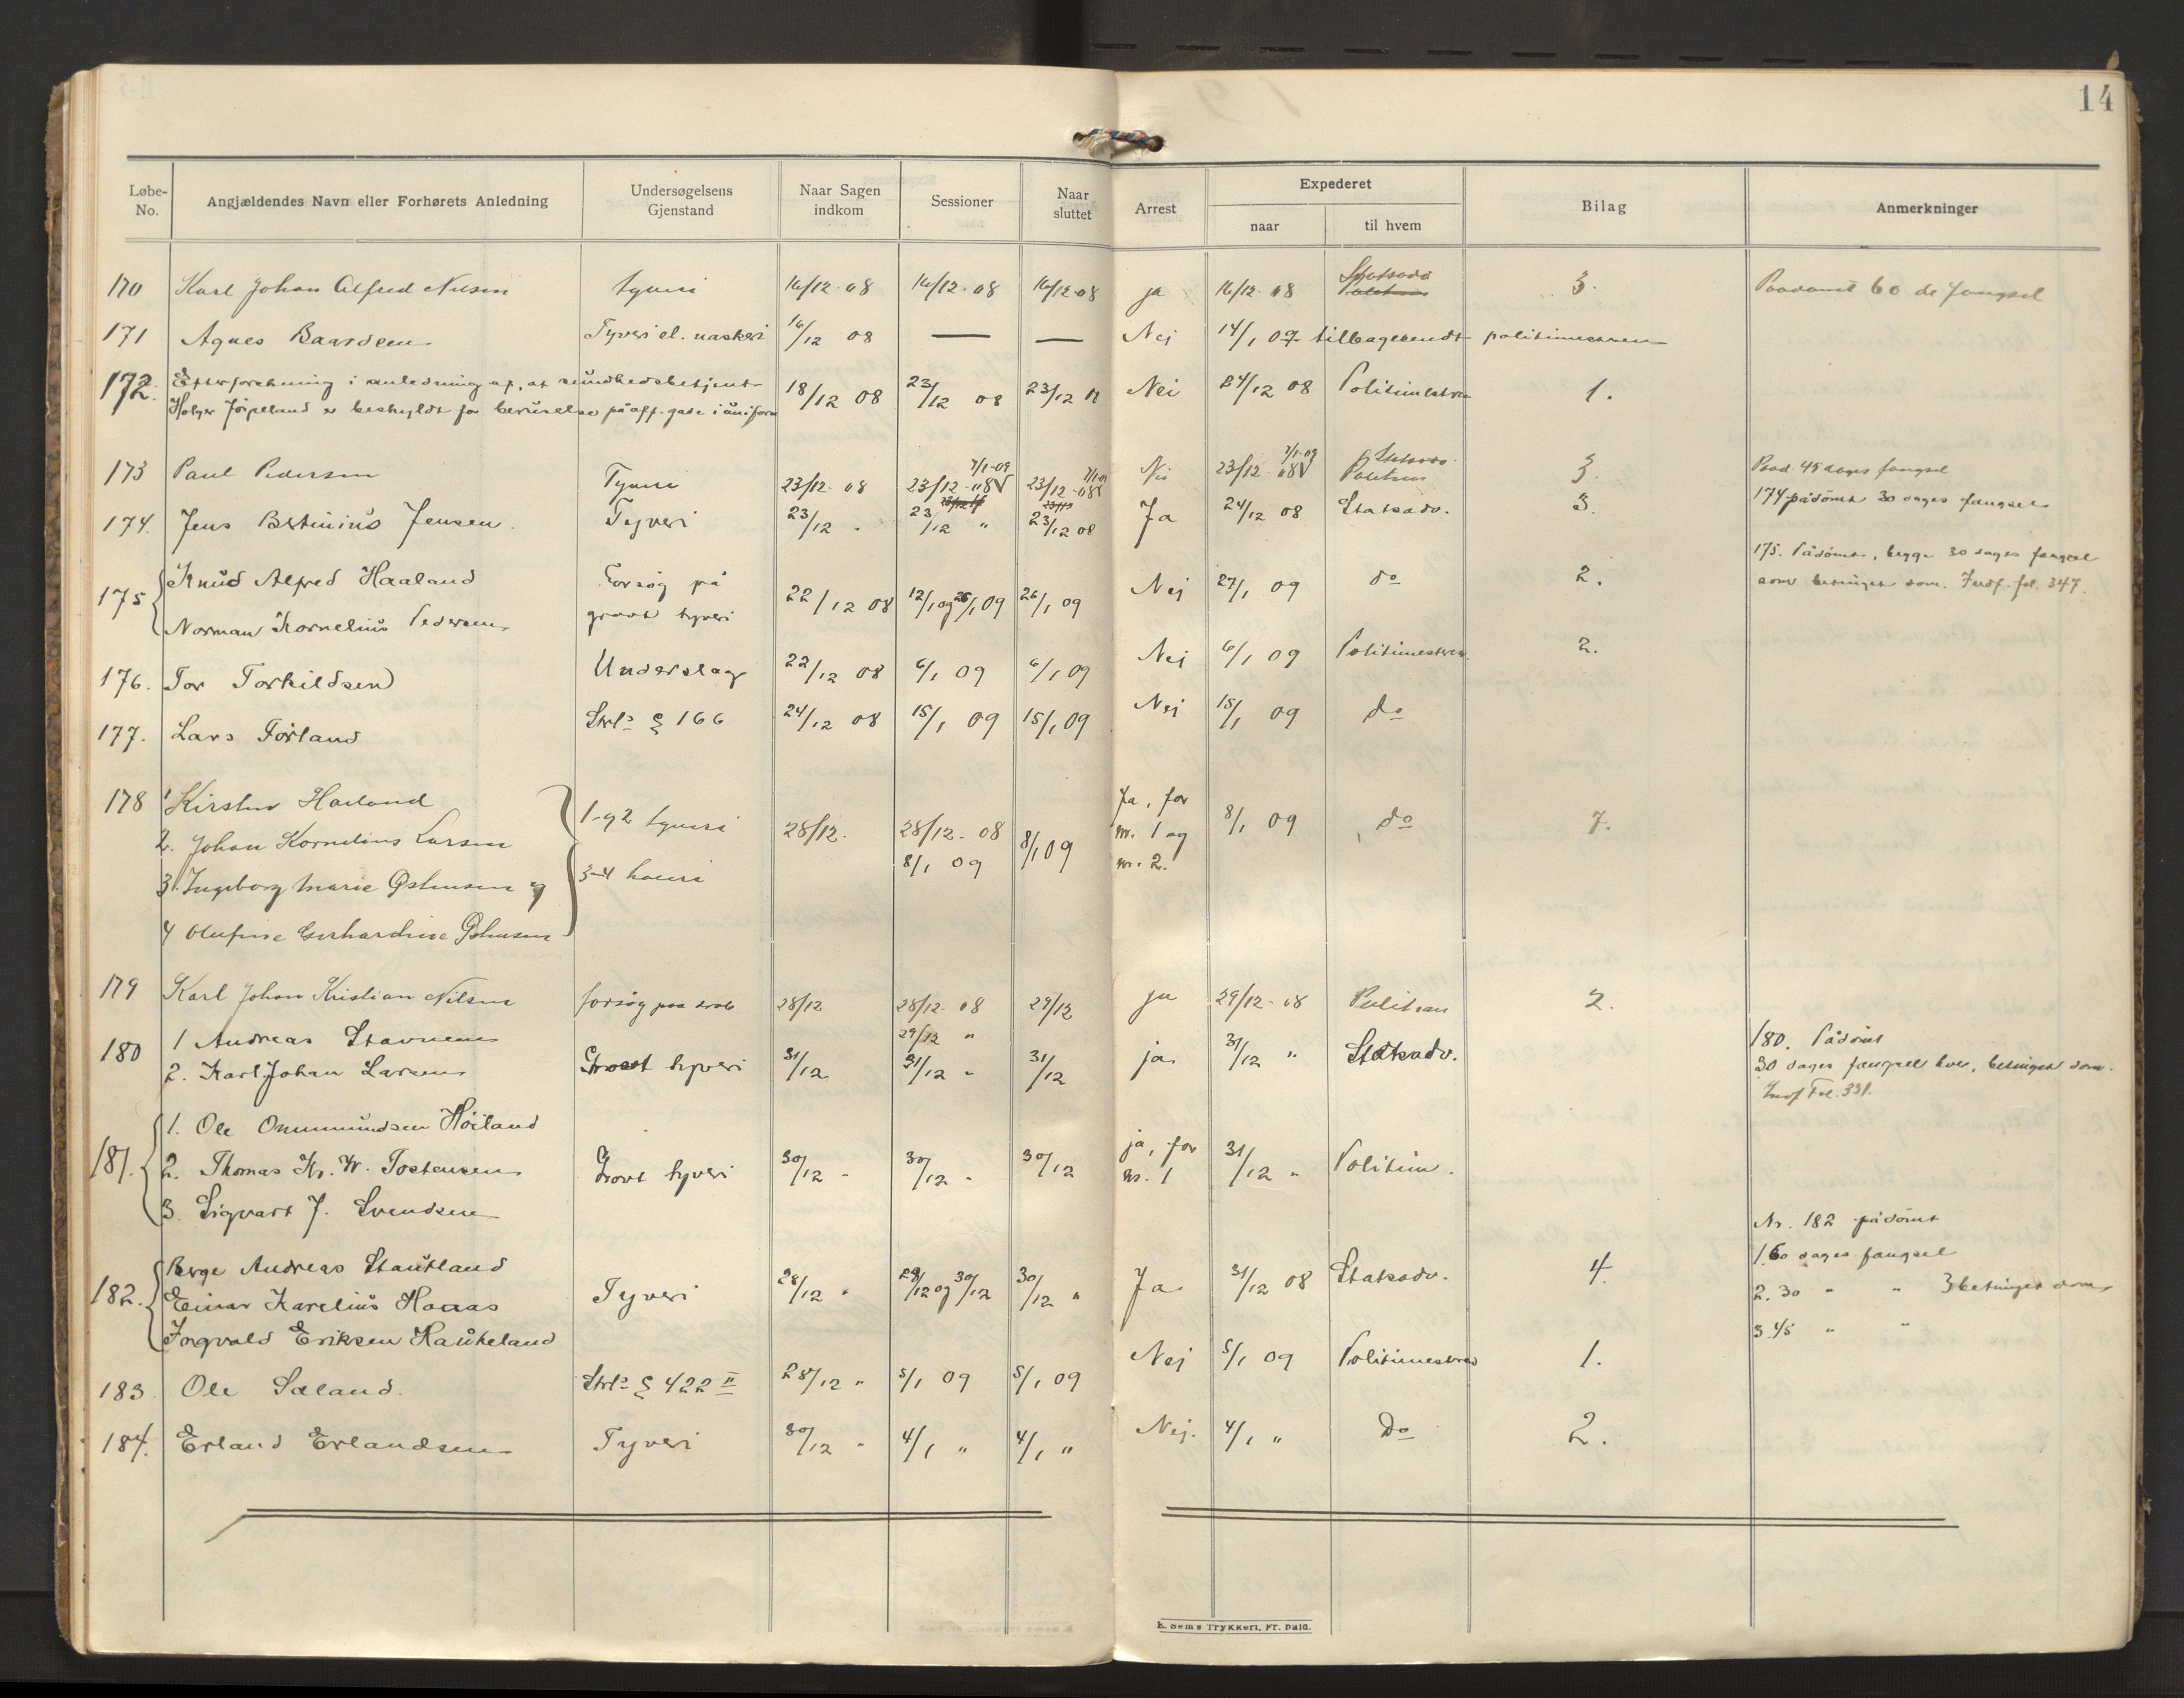 14
Løbe-No. Angjældendes Navn eller Forhørets Anledning Undersøgelsens Gjenstand Naar Sagen indkom Sessioner Naar sluttet Arrest Expederet naar til hvem Bilag Anmerkninger
170 Karl Johan Alfred Nilsen tyveri 16/12-08 16/12-08 16/12-08 ja 16/12-08 Statsadv 3. Paadømt 60 dg fængsel
171 Agnes Baardsen Tyveri el. naskeri 16/12 08 — — Nej 14/1 09 tilbagesendt politimestren
172. Efterforskning i anledning af, at sundhedsbetjent
Holger Jörpeland er beskyldt for beruselse på off. gade i uniform 18/12 08 23/12 08 23/12 08 Nei 24/12 08 Politimestren 1.
173 Paul Pedersen Tyveri 23/12-08 23/12-08 7/1-09 23/12-08 7/1-09 Nei 23/12-08 7/1-09 Politim Statsadv. 3. Paad. 45 dages fængsel
174. Jens Bertinius Jensen Tyveri 23/12 " 23/12 " 23/12 08 Ja 24/12 08 Statsadv. 3. 174 pådömt 30 dages fængsel
175 Knud Alfred Haaland
Norman Kornelius Pedersen Forsøg på grovt tyveri 22/12 08 12/1 og 26/1 09 26/1 09 Nej 27/1 09 do 2. 175. Pådömt, begge 30 dages fængsel
som betinget dom. Indf. fol. 347.
176. Tor Torkildsen Underslag 22/12 08 6/1 09 6/1 09 Nei 6/1 09 Politimestren. 2.
177. Lars Förland Strl § 166 24/12 08 15/1 09 15/1 09 Nej 15/1 09 do
178 1 Kirsten Haaland
2. Johan Kornelius Larsen 1 og 2 tyveri 28/12. 28/12-08 8/1 09 8/1 09 Ja, for nr. 1 og nr. 2. 8/1 09 do 7.
3. Ingeborg Marie og 3-4 heleri
4 Olufine Gerhardine
179 Karl Johan Kristian Nilsen forsøg paa drab 28/12 28/12-08 29/12 " 29/12 ja 29/12-08 Politim 2.
180 1 Andreas Stavnem
2. Karl Johan Larsen Grovt tyveri 31/12 31/12 " 31/12 ja 31/12 " Statsadv. 180. Pådömt
30 dages fængsel hver, betinget dom.
Indf Fol. 331.
181. 1. Ole Ommundsen Höiland
2. Thomas Kr. W. Tostensen Grovt tyveri 30/12 " 30/12 " 30/12 ja, for nr. 1 31/12 " Politim.
3. Sigvart J. Svendsen
182. Berge Andreas Stautland
Einar Karelius Haaas Tyveri 28/12 " 29/12 og 30/12 30/12 " Ja 31/12 08 Statsadv. 4. Nr. 182 pådömt
1. 60 dages fængsel
Ingvald Eriksen Haukeland 2. 30 " " 3 betinget dom
3. 45 " "
183 Ole Sæland. Strl § 422 II 28/12 " 5/1 09 5/1 09 Nej 5/1 09 Politimestren 1.
184. Erland Erlandsen Tyveri 30/12 " 4/1 " 4/1 " Nej. 4/1 " Do 2.
E. Sems Trykkeri, Fr. Hald.